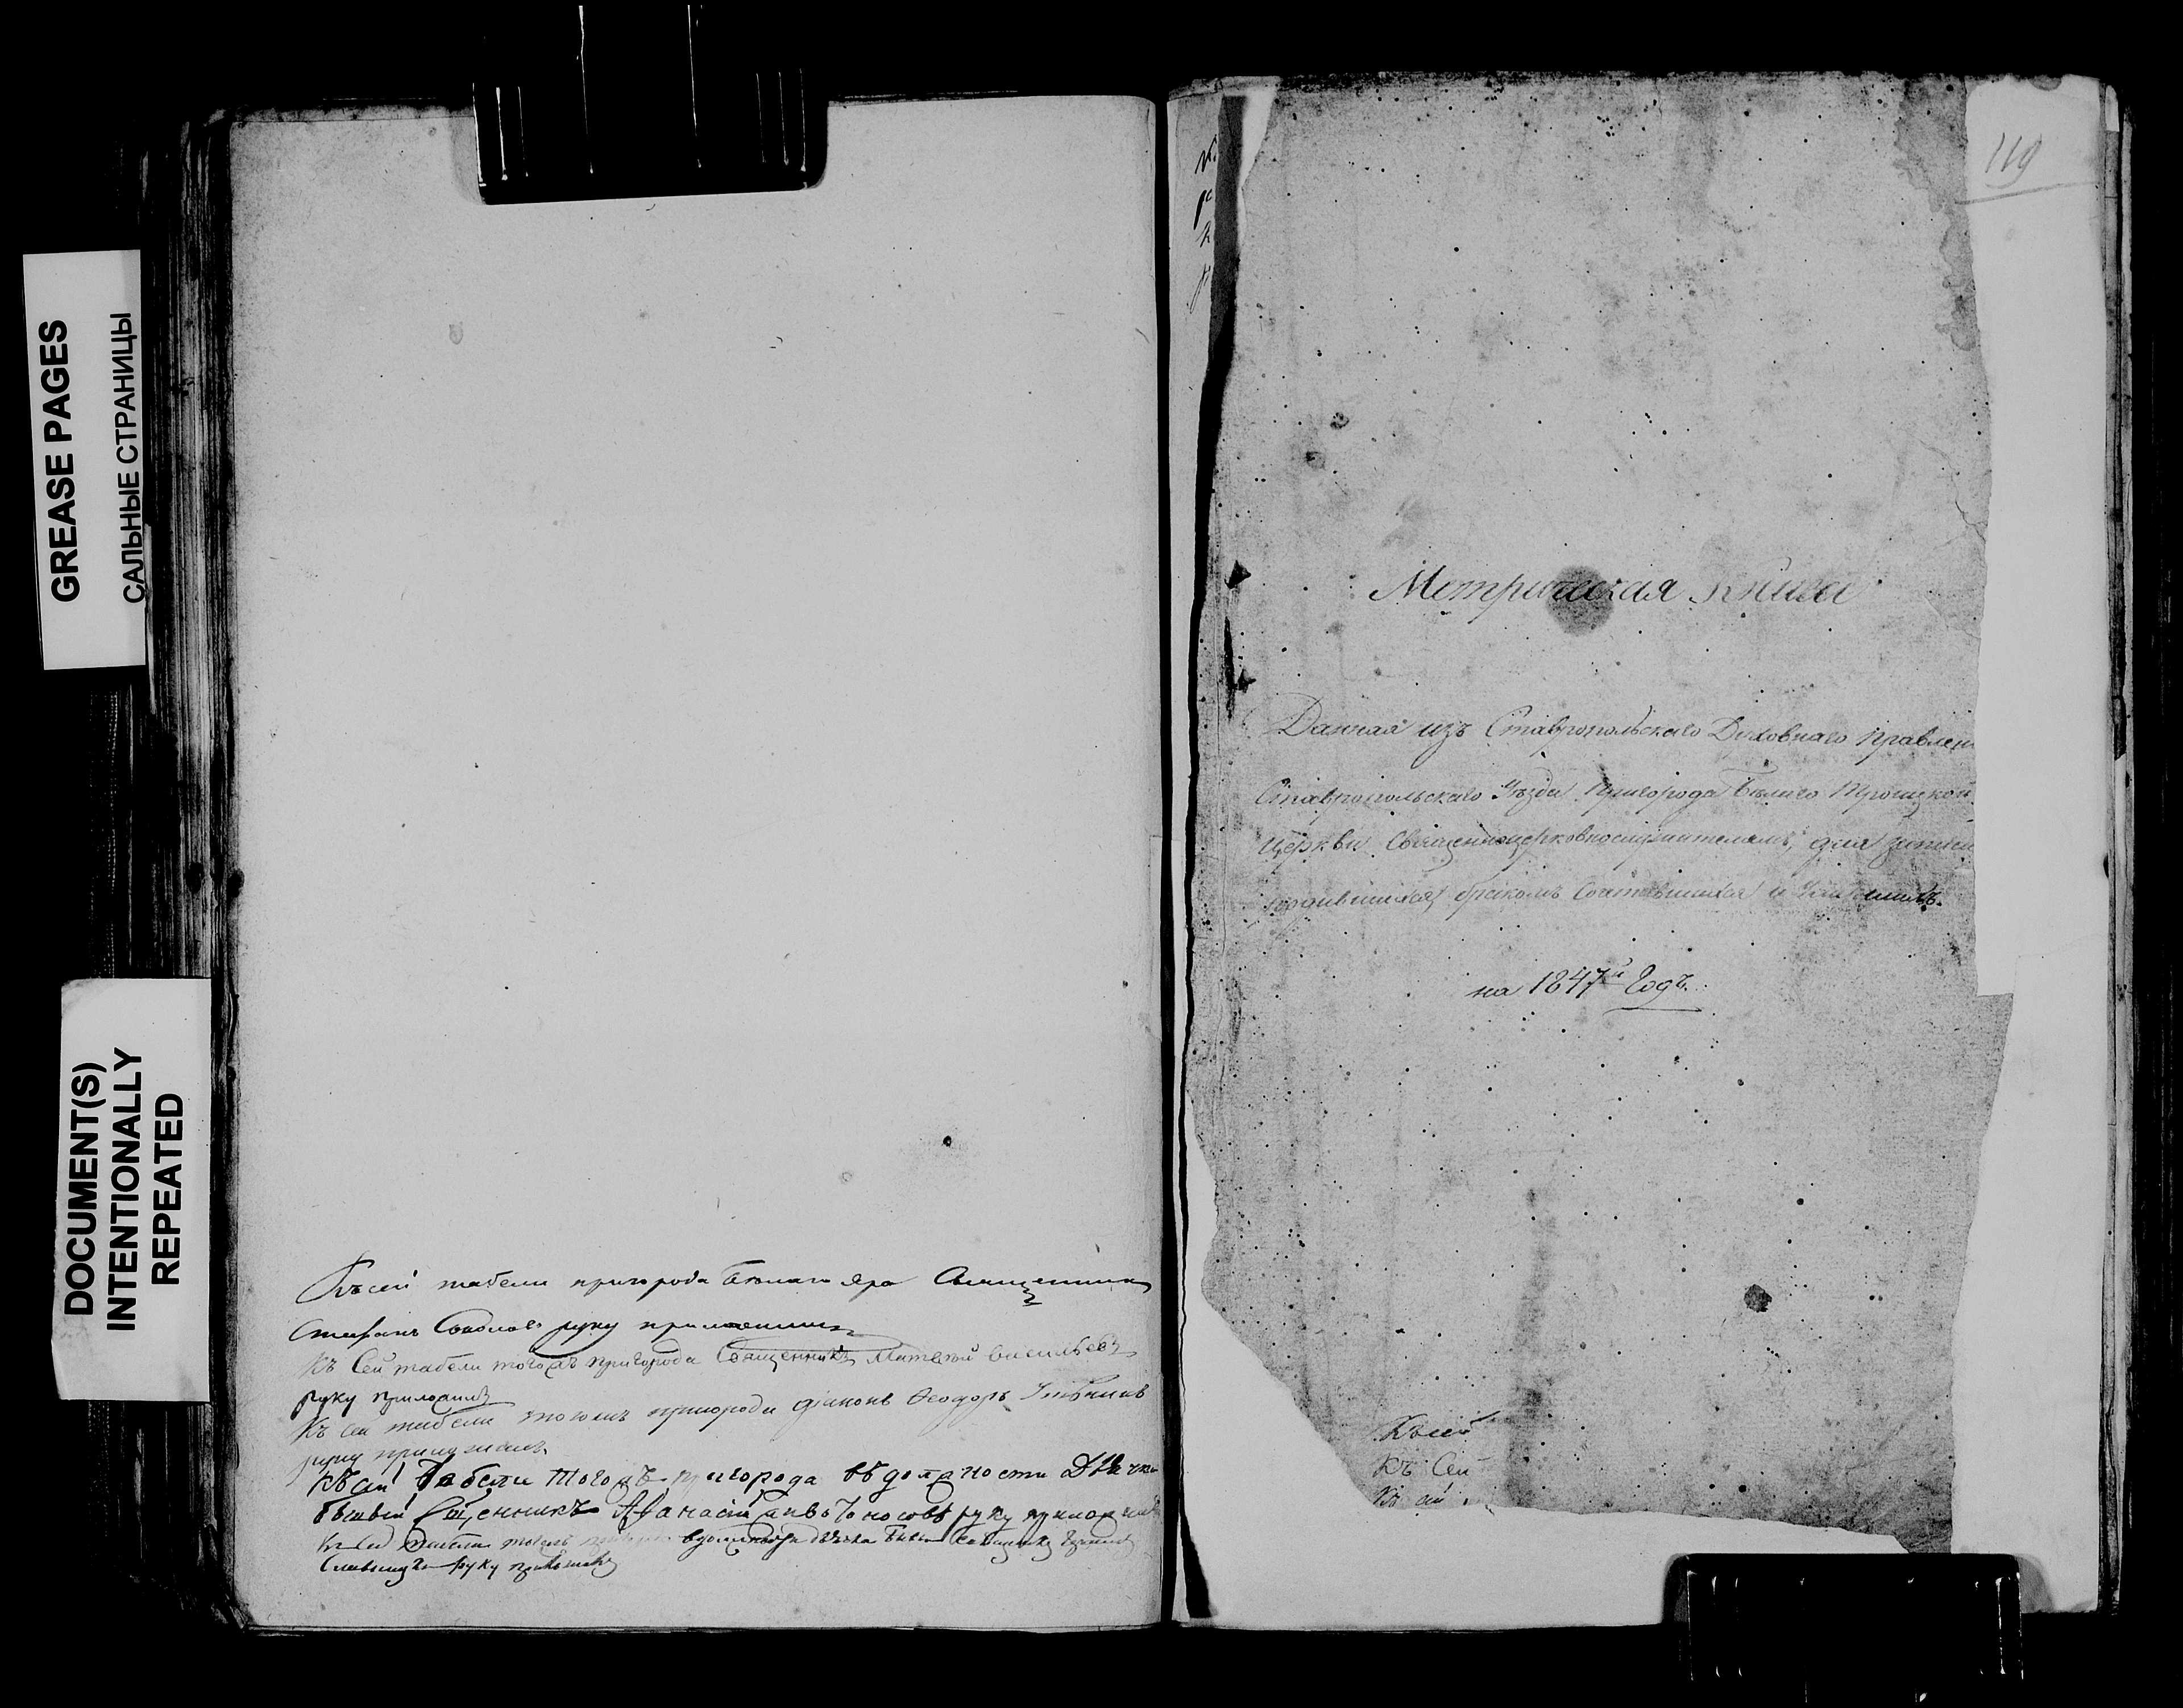 GREASE PAGES
САЛЬНЫЕ СТРАНИЦЫ
DOCUMENT(S)
INTENTIONALLY
REPEATED
Къ сей табели пригорода Белаго яра Священникъ
Стефанъ Соколовъ руку приложилъ
Къ Сей табели тогожъ пригорода Священникъ Матвей Васильевъ
руку приложилъ
Къ сей табели тогожъ пригорода діаконъ Ѳеодоръ
руку приложилъ
Къ сей табели тогожъ пригорода въ должности Дьячка
бывый Священникъ Аѳанасій руку приложилъ
Къ сей табели тогожъ въ должности
руку приложилъ
119
Метрическая Книга
Данная изъ Ставропольскаго Духовнаго Правлен
Ставропольскаго Уѣзда Пригорода Белаго Троицкой
Церкви Священноцерковнослужителямъ, для записи
родившихся, бракомъ сочетавшихся и умершихъ.
на 1847й Годъ.
Къ сей
Къ Сей
Къ сей